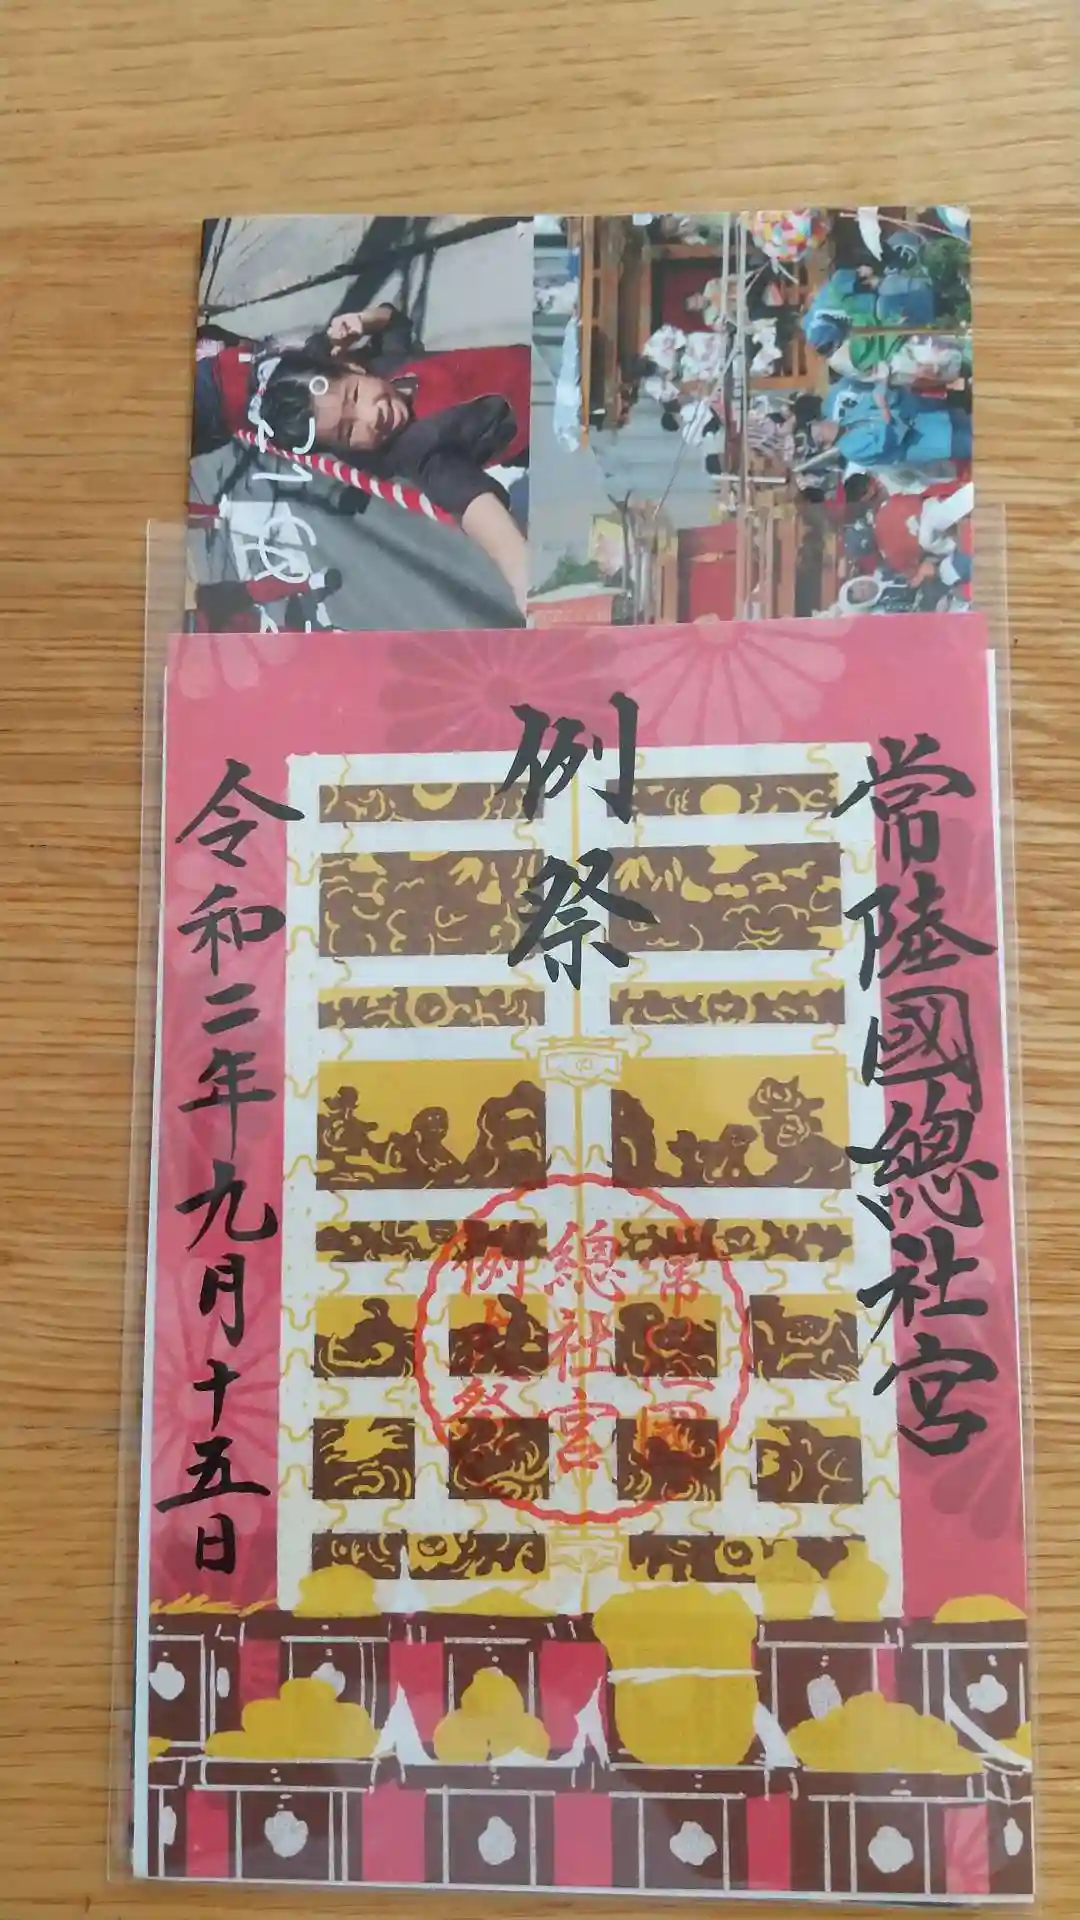 常陸國總社宮
例祭
令和二年九月十五日
常陸國
總社宮
例大祭